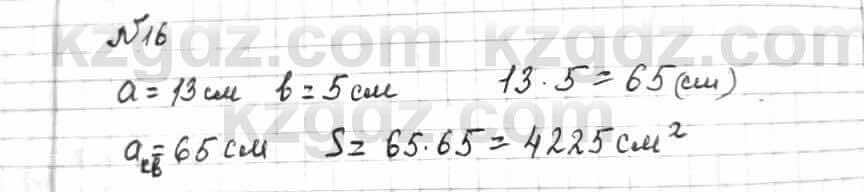 kzgdz.com kzgdz.com
№16
a = 13 см в = 5 см 13 · 5 = 65 (см)
kzgdz.com
aкв = 65 см S = 65 · 65 = 4225 см²